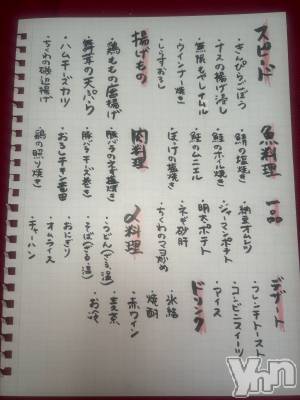 スピード
・きんぴらごぼう
・ナスの揚げ浸し
・無限もやしナムル
・ウインナー焼き
・しらすおろし
揚げもの
・鶏ももの唐揚げ
・舞茸の天ぷら
・ハムチーズカツ
・ちくわの磯辺揚げ
魚料理
・鯖の塩焼き
・鮭のホイル焼き
・鮭のムニエル
・ほっけの塩焼き
肉料理
・豚バラのネギ塩焼き
・豚バラチーズ巻き
・おろしチキン竜田
・鶏の照り焼き
一品
・納豆オムレツ
・ジャーマンポテト
・明太ポテト
・ネギ砂肝
・ちくわのマヨ炒め
〆料理
・うどん(ざる,温)
・そば(ざる,温)
・おにぎり
・オムライス
・チャーハン
デザート
・フレンチトースト
・コンビニスイーツ
・アイス
ドリンク
・氷結
・焼酎
・赤ワイン
・麦茶
・お冷
yhn